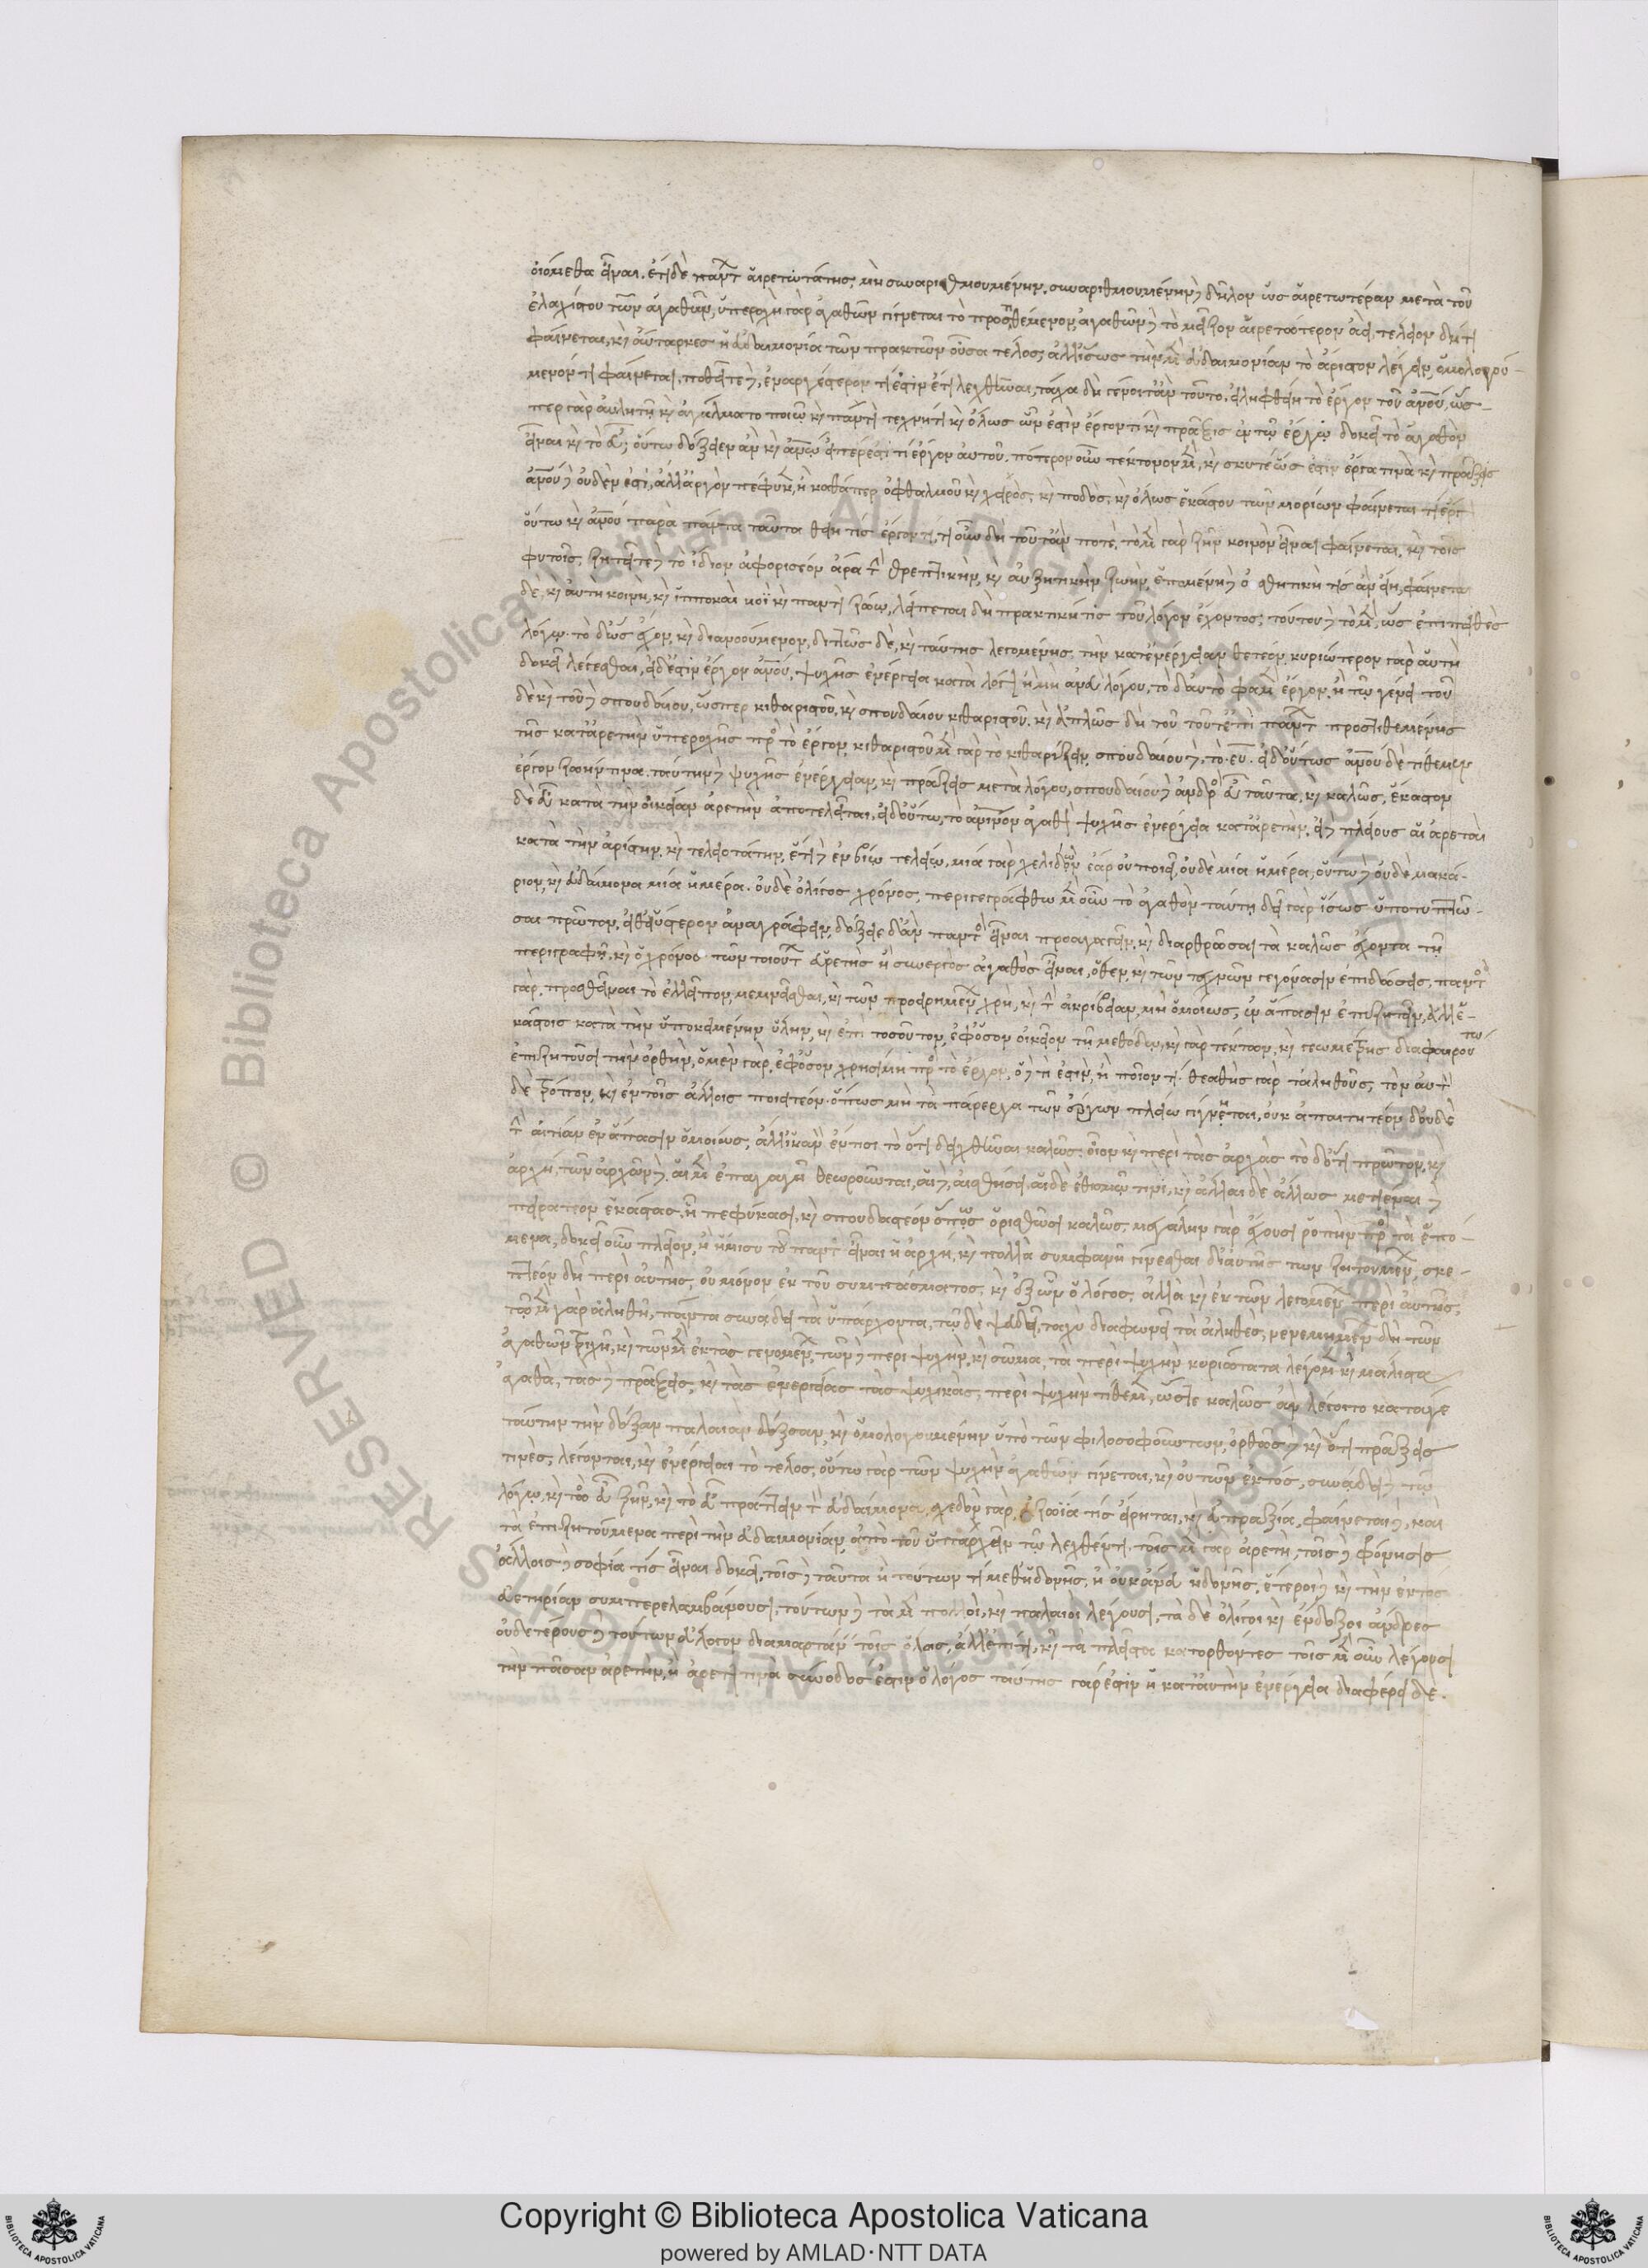 οἰόμεθα εἶναι. ἔτι δὲ πάντων αἱρετωτάτην, μὴ συναριθμουμένην. συναριθμουμένην δὲ δῆλον ὡς αἱρετωτέραν μετὰ τοῦ
ἐλαχίστου τῶν ἀγαθῶν, ὑπεροχὴ γὰρ ἀγαθῶν γίγνεται τὸ προστιθέμενον, ἀγαθῶν δὲ τὸ μεῖζον αἱρετώτερον ἀεί, τέλειον δή τι
φαίνεται, καὶ αὔταρκες ἡ εὐδαιμονία τῶν πρακτῶν οὖσα τέλος, ἀλλ' ἴσως τὴν μὲν εὐδαιμονίαν τὸ ἄριστον λέγειν, ὁμολογού-
μενόν τι φαίνεται, ποθεῖται δὲ, ἐναργέστερον τί ἐστιν ἔτι λεχθῆναι, τάχα δὴ γένοιτ' ἂν τοῦτο, εἰ ληφθείη τὸ ἔργον τοῦ ἀνθρώπου, ὥσ-
περ γὰρ αὐλητῇ καὶ ἀγαλματοποιῷ καὶ παντὶ τεχνίτῃ καὶ ὅλως ὧν ἐστὶν ἔργον τι καὶ πρᾶξις ἐν τῷ ἔργῳ δοκεῖ τὸ ἀγαθὸν
εἶναι καὶ τὸ εὖ, οὕτω δόξειεν ἂν καὶ ἀνθρώπῳ εἴπερ ἐστί τι ἔργον αὐτοῦ. πότερον οὖν τέκτονος μὲν, καὶ σκυτέως ἐστὶν ἔργα τινὰ καὶ πράξεις
ἀνθρώπου δὲ οὐδέν ἐστι, ἀλλ' ἀργὸν πέφυκεν, ἢ καθάπερ ὀφθαλμοῦ καὶ χειρός, καὶ ποδός, καὶ ὅλως ἑκάστου τῶν μορίων φαίνεταί τι ἔργον
οὕτω καὶ ἀνθρώπου παρὰ πάντα ταῦτα θείη τις ἔργον τι, τί οὖν δὴ τοῦτ' ἂν εἴη ποτέ, τὸ μὲν γὰρ ζῆν κοινὸν εἶναι φαίνεται, καὶ τοῖς
φυτοῖς, ζητεῖται δὲ τὸ ἴδιον ἀφοριστέον ἄρα τὴν θρεπτικὴν, καὶ αὐξητικὴν ζωήν, ἑπομένη δὲ αἰσθητική τις ἂν εἴη, φαίνεται
δὲ, καὶ αὐτὴ κοινὴ, καὶ ἵππῳ καὶ βοῒ καὶ παντὶ ζώῳ, λείπεται δὴ πρακτική τις τοῦ λόγον ἔχοντος, τούτου δὲ τὸ μὲν, ὡς ἐπιπειθὲς
λόγῳ. τὸ δ' ὡς ἔχον, καὶ διανοούμενον, διττῶς δὲ, καὶ ταύτης λεγομένης τὴν κατ' ἐνέργειαν θετέον. κυριώτερον γὰρ αὕτη
δοκεῖ λέγεσθαι, εἰ δ' ἐστὶν ἔργον ἀνθρώπου, ψυχῆς ἐνέργεια κατὰ λόγον ἢ μὴ ἄνευ λόγου, τὸ δ' αὐτό φαμεν ἔργον, εἶναι τῷ γένει τοῦ
δὲ καὶ τοῦ δὲ σπουδαίου, ὥσπερ κιθαριστοῦ, καὶ σπουδαίου κιθαριστοῦ, καὶ ἁπλῶς δὴ τοῦτ' ἐπὶ πάντων προστιθεμένης
τῆς κατ' ἀρετὴν ὑπεροχῆς πρὸς τὸ ἔργον, κιθαριστοῦ μὲν γὰρ τὸ κιθαρίζειν, σπουδαίου δὲ, τὸ εὖ. εἰ δ' οὕτως ἀνθρώπου δὲ τίθεμεν
ἔργον ζωήν τινα, ταύτην δὲ ψυχῆς ἐνέργειαν, καὶ πράξεις μετὰ λόγου, σπουδαίου δὲ ἀνδρὸς εὖ ταῦτα, καὶ καλῶς, ἕκαστον
δὲ εὖ κατὰ τὴν οἰκείαν ἀρετὴν ἀποτελεῖται, εἰ δ' οὕτω, τὸ ἀνθρώπινον ἀγαθὸν ψυχῆς ἐνέργεια κατ' ἀρετήν, εἰ δὲ πλείους αἱ ἀρεταὶ
κατὰ τὴν ἀρίστην, καὶ τελειοτάτην, ἔτι δὲ ἐν βίῳ τελείῳ, μία γὰρ χελιδὼν ἔαρ οὐ ποιεῖ, οὐδὲ μία ἡμέρα, οὕτω δὲ οὐδὲ μακά-
ριον, καὶ εὐδαίμονα μία ἡμέρα. οὐδὲ ὀλίγος χρόνος, περιγεγράφθω μὲν οὖν τὸ ἀγαθὸν ταύτῃ δεῖ γὰρ ἴσως ὑποτυπῶ-
σαι πρῶτον, εἶθ' ὕστερον ἀναγράφειν, δόξειε δ' ἂν παντὸς εἶναι προαγαγεῖν, καὶ διαρθρῶσαι τὰ καλῶς ἔχοντα τῇ
περιγραφῇ, καὶ ὁ χρόνος τῶν τοιούτων εὑρετὴς ἢ συνεργὸς ἀγαθὸς εἶναι, ὅθεν, καὶ τῶν τεχνῶν γεγόνασιν ἐπιδόσεις, παντὸς
γὰρ, προσθεῖναι τὸ ἐλλεῖπον, μεμνῆσθαι, καὶ τῶν προειρημένων χρή, καὶ τὴν ἀκρίβειαν, μὴ ὁμοίως, ἐν ἅπασιν ἐπιζητεῖν, ἀλλ' ἑ-
κάστοις κατὰ τὴν ὑποκειμένην ὕλην, καὶ ἐπὶ τοσοῦτον, ἐφ' ὅσον οἰκεῖον τῇ μεθόδῳ, καὶ γὰρ τέκτων, καὶ γεωμέτρης διαφερόντως
ἐπιζητοῦσι τὴν ὀρθὴν, ὁ μὲν γὰρ, ἐφ' ὅσον χρησίμη πρὸς τὸ ἔργον, ὁ δὲ τί ἐστιν, ἢ ποῖόν τι. θεατὴς γὰρ τἀληθοῦς, τὸν αὐτὸν
δὲ τρόπον, καὶ ἐν τοῖς ἄλλοις ποιητέον. ὅπως μὴ τὰ πάρεργα τῶν ἔργων πλείω γίγνηται, οὐκ ἀπαιτητέον δ' οὐδὲ
τὴν αἰτίαν ἐν ἅπασιν ὁμοίως, ἀλλ' ἱκανὸν ἔν τισι τὸ ὅτι δειχθῆναι καλῶς, οἷον καὶ περὶ τὰς ἀρχάς τὸ δ' ὅτι πρῶτον, καὶ
ἀρχή, τῶν ἀρχῶν δὲ, αἱ μὲν ἐπαγωγῇ θεωροῦνται, αἱ δὲ, αἰσθήσει, αἱ δὲ ἐθισμῷ τινι, καὶ ἄλλαι δὲ ἄλλως μετιέναι δὲ
πειρατέον ἑκάστας, ᾗ πεφύκασι, καὶ σπουδαστέον ὅπως ὁρισθῶσι καλῶς, μεγάλην γὰρ ἔχουσι ῥοπὴν πρὸς τὰ ἑπό-
μενα, δοκεῖ οὖν πλεῖον, ἢ ἥμισυ τοῦ παντὸς εἶναι ἡ ἀρχή, καὶ πολλὰ συμφανῆ γίνεσθαι δι' αὐτῆς τῶν ζητουμένων, σκε-
πτέον δὴ περὶ αὐτῆς, οὐ μόνον ἐκ τοῦ συμπεράσματος, καὶ ἐξ ὧν ὁ λόγος, ἀλλὰ καὶ ἐκ τῶν λεγομένων περὶ αὐτῆς,
τῷ μὲν γὰρ ἀληθεῖ, πάντα συνᾴδει τὰ ὑπάρχοντα, τῷ δὲ ψευδεῖ, ταχὺ διαφωνεῖ τὰ ἀληθές, νενεμημένων δὴ τῶν
ἀγαθῶν τριχῇ, καὶ τῶν μὲν ἐκτὸς λεγομένων, τῶν δὲ περὶ ψυχὴν, καὶ σῶμα, τὰ περὶ ψυχὴν κυριώτατα λέγομεν καὶ μάλιστα
ἀγαθά, τὰς δὲ πράξεις, καὶ τὰς ἐνεργείας τὰς ψυχικάς, περὶ ψυχὴν τίθεμεν, ὥστε καλῶς ἂν λέγοιτο κατά γε
ταύτην τὴν δόξαν παλαιὰν δόξαν, καὶ ὁμολογουμένην ὑπὸ τῶν φιλοσοφούντων, ὀρθῶς δὲ καὶ ὅτι πράξεις
τινὲς, λέγονται, καὶ ἐνέργειαι τὸ τέλος, οὕτω γὰρ τῶν ψυχὴν ἀγαθῶν γίνεται, καὶ οὐ τῶν ἐκτός, συνᾴδει δὲ τῷ
λόγῳ, καὶ τὸ εὖ ζῆν, καὶ τὸ εὖ πράττειν τὸν εὐδαίμονα, σχεδὸν γὰρ, εὐζωΐα τὶς εἴρηται, καὶ εὐπραξία, φαίνεται δὲ, καὶ
τὰ ἐπιζητούμενα περὶ τὴν εὐδαιμονίαν, ἀπὸ τοῦ ὑπάρχειν τῷ λεχθέντι. τοῖς μὲν γὰρ ἀρετή, τοῖς δὲ φρόνησις
ἄλλοις δὲ σοφία τὶς εἶναι δοκεῖ, τοῖς δὲ ταῦτα ἢ τούτων τι μεθ' ἡδονῆς, ἢ οὐκ ἄνευ ἡδονῆς, ἕτεροι δὲ καὶ τὴν ἐκτὸς
εὐετηρίαν συμπεριλαμβάνουσι, τούτων δὲ τὰ μὲν πολλοὶ, καὶ παλαιοὶ λέγουσι, τὰ δὲ ὀλίγοι καὶ ἔνδοξοι ἄνδρες
οὐδετέρους δὲ τούτων εὔλογον διαμαρτάνειν τοῖς ὅλοις, ἀλλ' ἕν τι, καὶ τὰ πλεῖστα κατορθοῦντες τοῖς μὲν οὖν λέγουσι
τὴν πᾶσαν ἀρετὴν, ἢ ἀρετήν τινα συνῳδός ἐστιν ὁ λόγος ταύτης γάρ ἐστιν ἡ κατ' αὐτὴν ἐνέργεια διαφέρει δὲ.
© Biblioteca Apostolica Vaticana ALL RIGHTS RESERVED
Copyright © Biblioteca Apostolica Vaticana
powered by AMLAD·NTT DATA
BIBLIOTECA APOSTOLICA VATICANA
BIBLIOTECA APOSTOLICA VATICANA